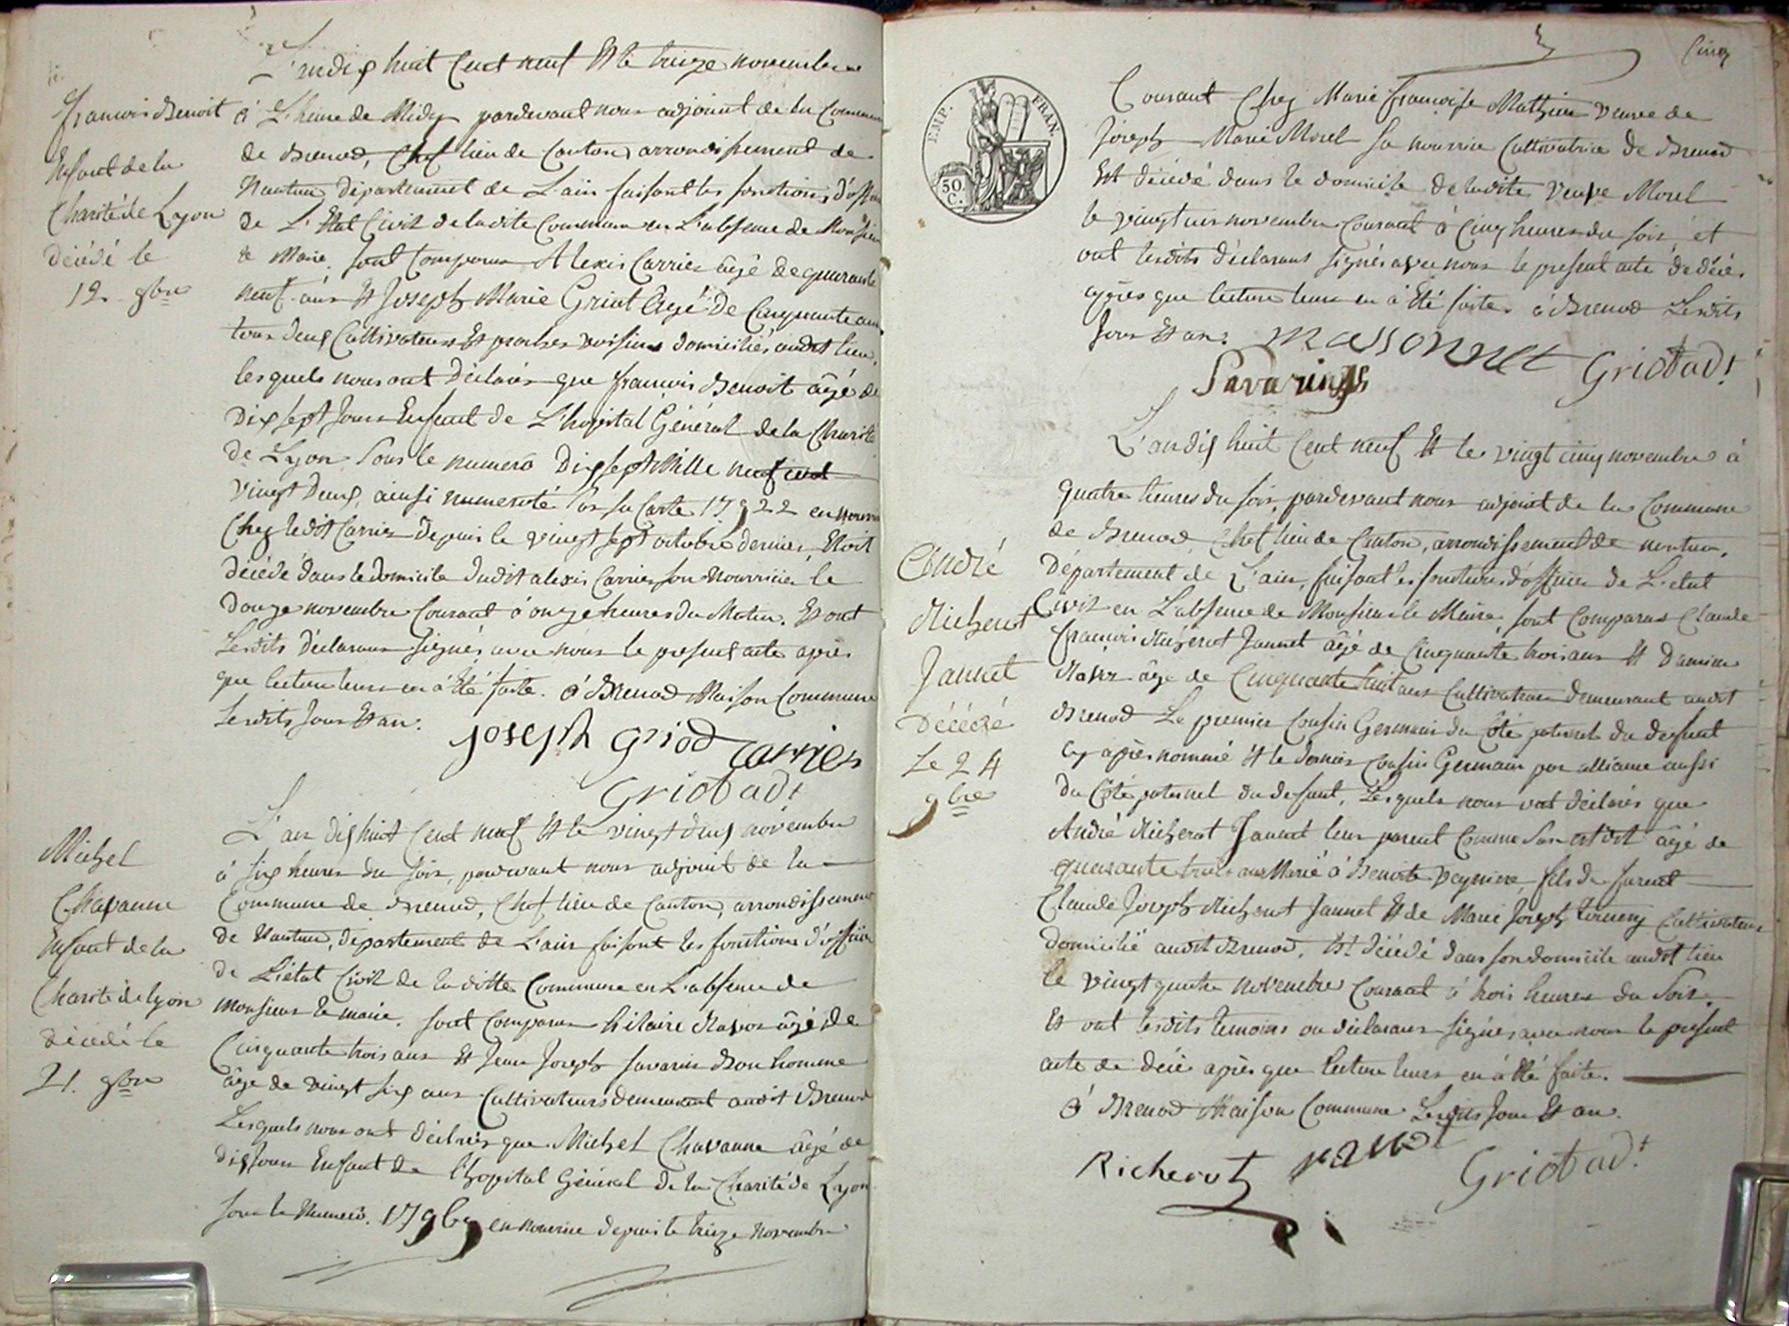 L'an dix huit Cent neuf Et le treize novembre
francois Benoit
Enfant de la
Charité de Lyon
décédé le
12. 9bre
à L'heure de Midy pardevant nous adjoint de la Commune
de Brenod, Chef lieu de Canton, arrondissement de
Nantua Département de L'ain faisant les fonctions d'officier
de L'Etat Civil de ladite Commune en L'absence de Monsieur
le Maire, sont Comparus Alexis Carrier âgé de quarante
neuf ans Et Joseph Marie Griot Agé De Cinquante ans
tous deux Cultivateurs Et proches voisins domiciliés audit lieu,
lesquels nous ont Déclarés que francois Benoit âgé de
Dix sept Jours Enfant de L'hopital Général de la Charité
De Lyon Sous le numero Dix sept Mille neuf cent
vingt Deux, ainsi numeroté sur sa Carte 17922 en nourrice
Chez ledit Carrier Depuis le vingt sept octobre dernier, Etoit
Décédé dans le Domicile dudit alexis Carrier son nourricier le
Douze novembre Courant à onze heures du Matin. Et ont
Lesdits Déclarans signés avec nous le present acte après
que lecture leur en à Eté faite. à Brenod Maison Commune
Lesdits Jour Et an.
joseph griod Carrier
Griot adt
Michel
Chavanne
Enfant de la
Charité de Lyon
décédé le
21. 9bre
L'an dix huit Cent neuf Et le vingt deux novembre
à six heures du soir, pardevant nous adjoint de la
Commune de Brenod, Chef lieu de Canton, arrondissement
de Nantua, département de L'ain faisant les fonctions d'officier
de L'état Civil de la ditte Commune en L'absence de
monsieur le maire. sont Comparus hilaire âgé de
Cinquante trois ans Et Jean Joseph Savarin Bonhomme
âgé de vingt six ans Cultivateurs demeurant audit Brenod
Lesquels nous ont déclarés que Michel Chavanne âgé de
dix Jours Enfant de l'hopital Général de la Charité de Lyon
sous le Numero. en nourrice depuis le treize Novembre
Cinq
EMP. FRAN.
50 C.
Courant Chez Marie françoise Mathieu veuve de
Joseph Marie Morel sa nourrice Cultivatrice de Brenod
Est décédé dans le domicile de ladite veuve Morel
le vingt un novembre Courant à Cinq heures du soir, et
ont lesdits déclarans signés avec nous le present acte de décès
après que lecture leur en à Eté faite à Brenod Lesdits
Jour Et an. Massonnet Griot adt
Savarin
André
Richerot
Jannet
Décédé
Le 24
9bre
L'an dix huit Cent neuf Et le vingt cinq novembre à
quatre heures du soir, pardevant nous adjoint de la Commune
de Brenod Chef lieu de Canton, arrondissement de nantua,
Département de L'ain, faisant les fonctions d'officier de L'état
Civil en L'absence de Monsieur le Maire, sont Comparus Claude
françois Richerot Jannet âgé de Cinquante trois ans Et Damien
âgé de Cinquante huit ans Cultivateurs demeurant audit
Brenod Le premier Cousin Germain du Coté paternel du defunt
cy après nommé Et le dernier Cousin Germain par alliance aussi
du Coté paternel du defunt, Lesquels nous ont déclarés que
André Richerot Jannet leur parent Comme sus est dit âgé de
quarante trois ans Marié à Benoite fils de furent
Claude Joseph Richerot Jannet Et de Marie Joseph Cultivateur
domicilié audit Brenod, Est décédé dans son domicile audit lieu
le vingt quatre novembre Courant à trois heures du Soir.
Et ont lesdits temoins ou déclarans signés avec nous le présent
acte de décè après que lecture leur en à Eté faite.
à Brenod Maison Commune Lesdits Jour Et an.
Richerot Griot adt